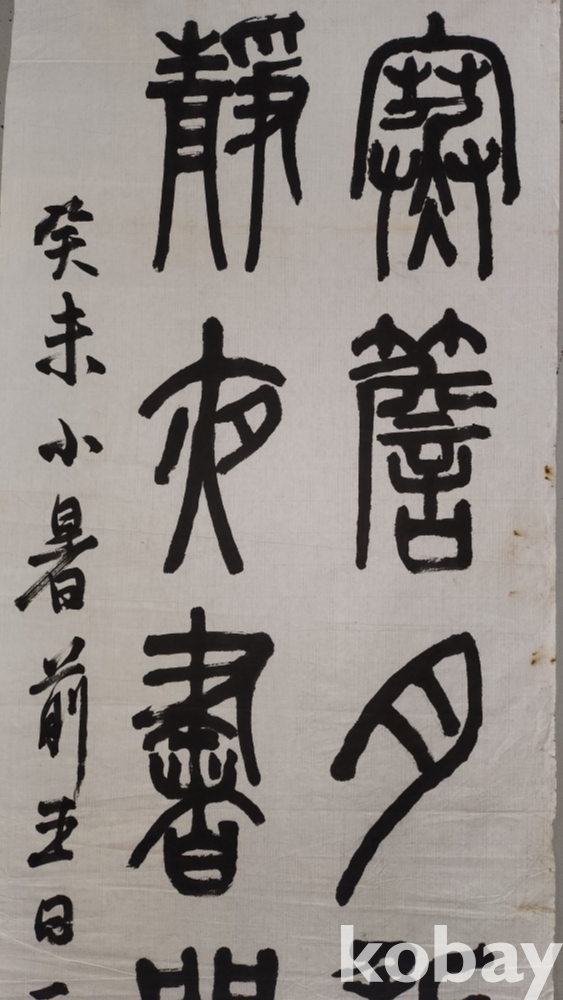 寒簷月
靜夜書
癸未小暑前五日
kobay